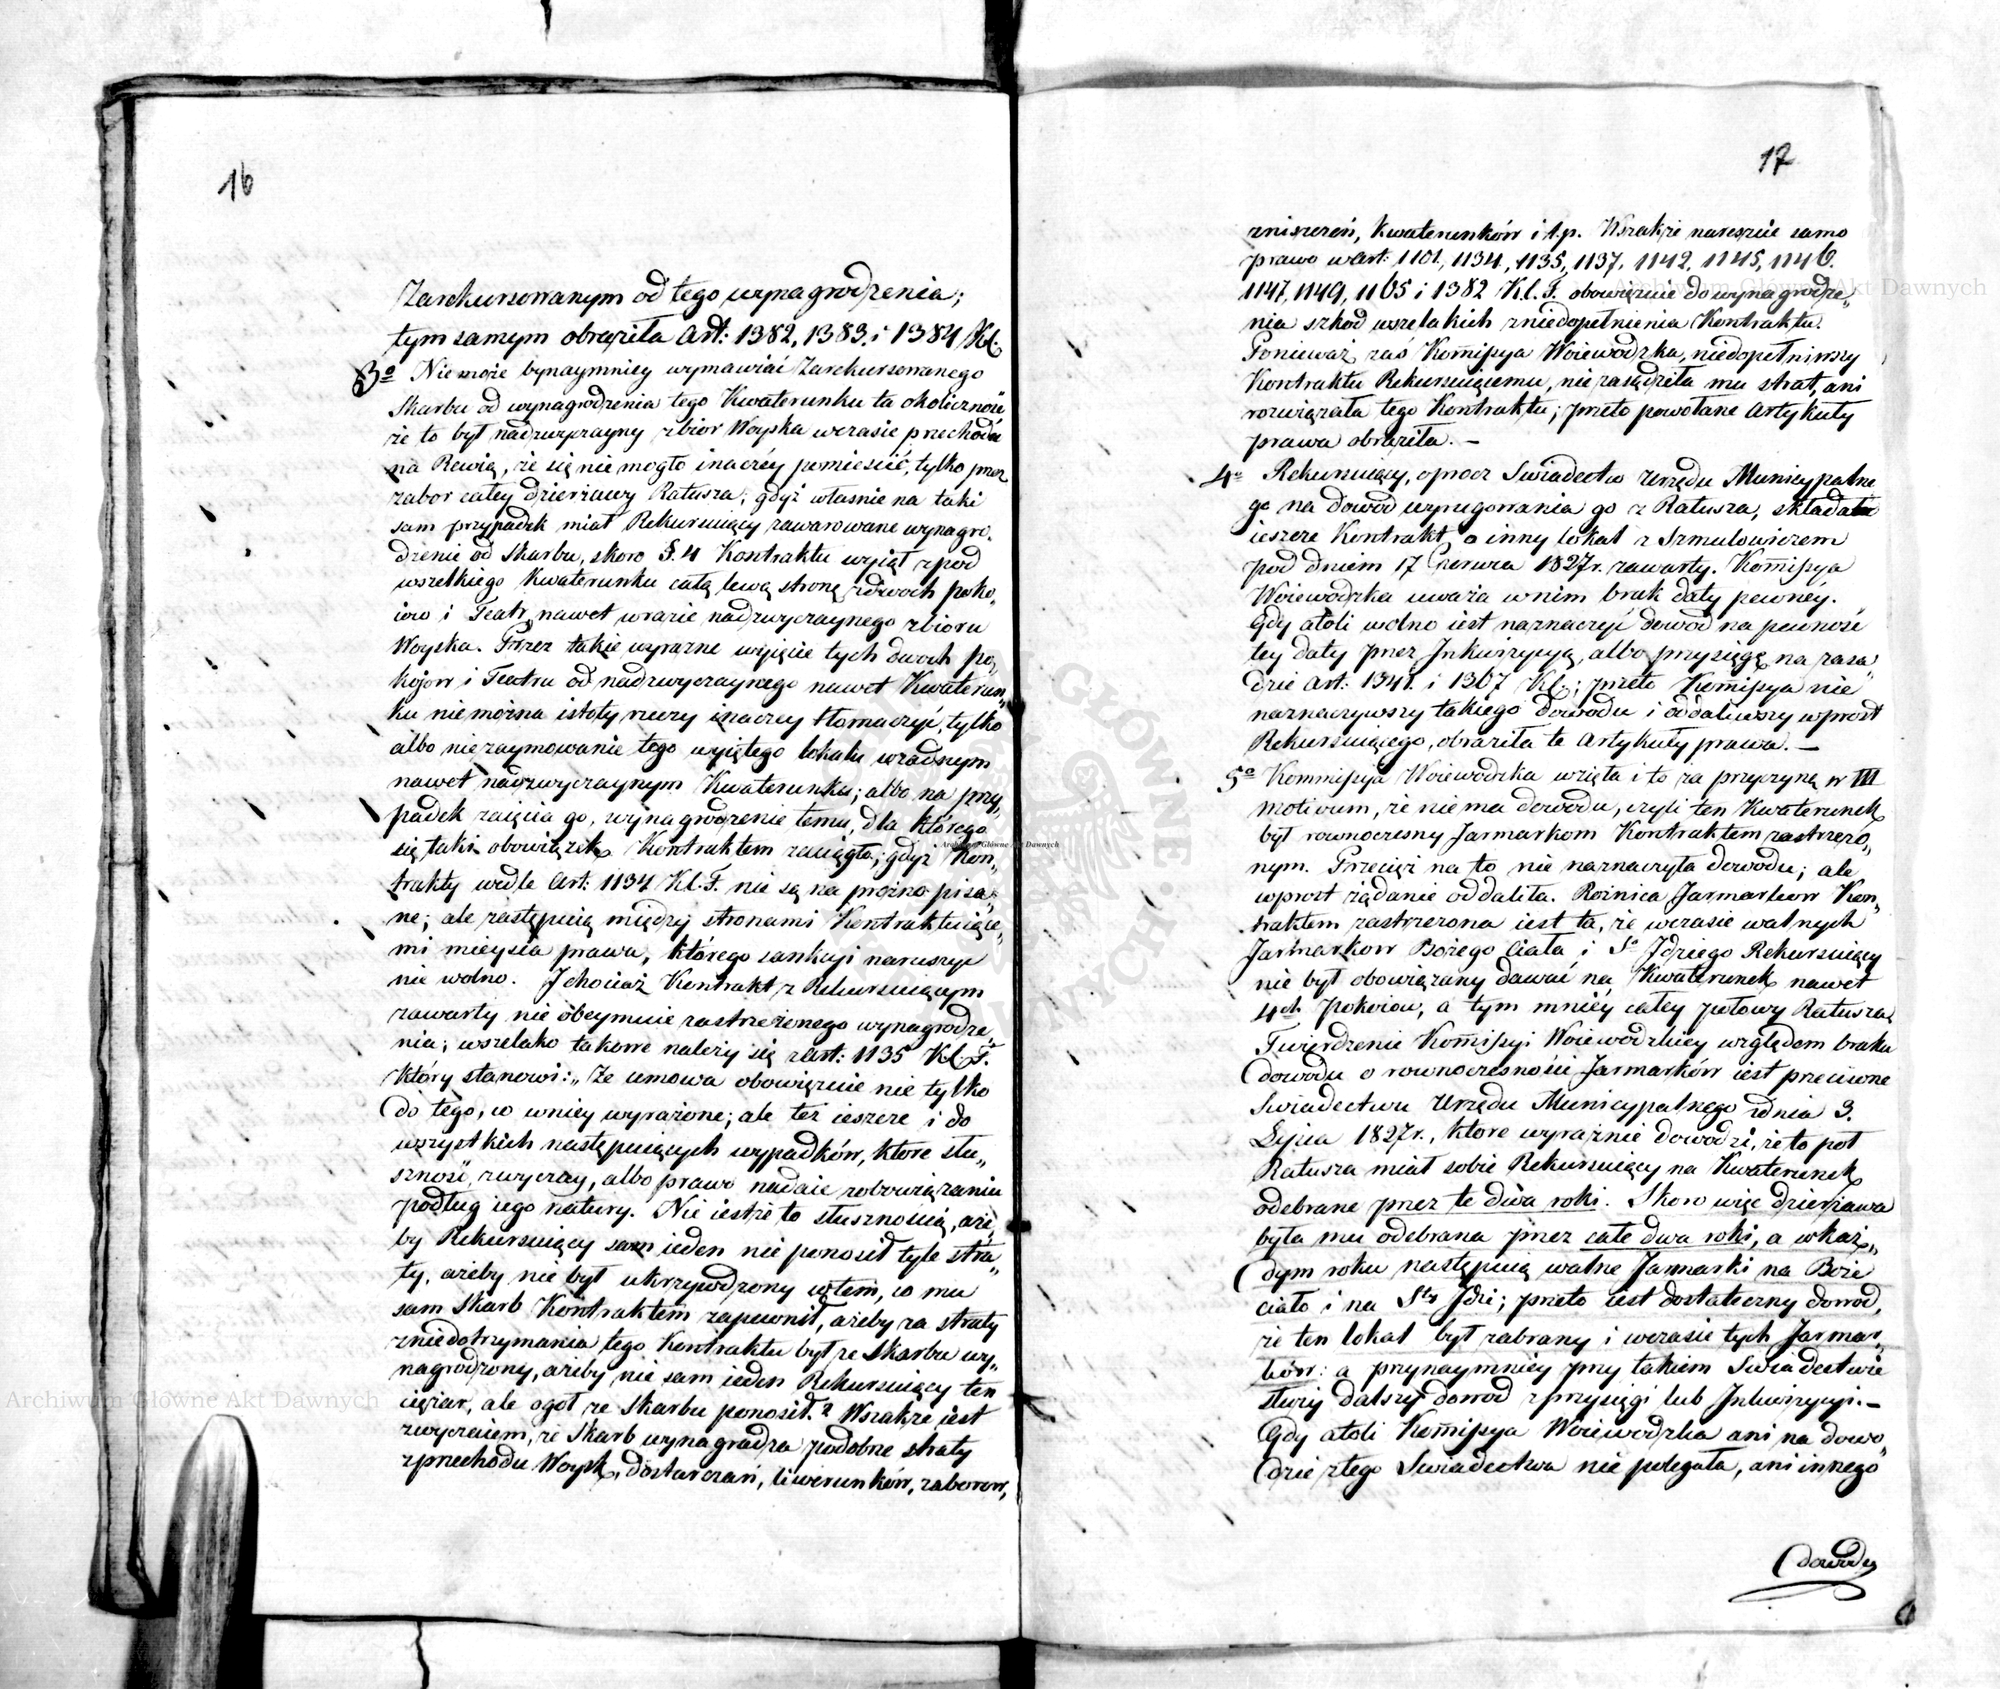 16
Zarekursowanym od tego wynagrodzenia;
tym samym obraziła Art: 1382, 1383, i 1384 Kl.
3º Nie może bynaymniey wymawiać Zarekursowanego
Skarbu od wynagrodzenia tego Kwaterunku ta okoliczność
że to był nadzwyczayny zbior Woyska wczasie przechodu
na Rewią, że się nie mogło inaczéy pomieścić, tylko przez
zabor całey dzierżawy Ratusza; gdyż własnie na taki
sam przypadek miał Rekursuiący zawarowane wynagro„
dzenie od Skarbu, skoro §. 4 Kontraktu wyiął zpod
wszelkiego Kwaterunku całą lewą stronę zdwoch poko„
iow i Teatr, nawet wrazie nadzwyczaynego zbioru
Woyska. Przez takie wyrazne wyięcie tych dwoch po„
kojow i Teatru od nadzwyczaynego nawet Kwaterun„
ku nie można istoty rzeczy inaczey tłomaczyć, tylko
albo niezaymowanie tego wyiętego lokalu wżadnym
nawet nadzwyczaynym Kwaterunku; albo na przy„
padek zaięcia go, wynagrodzenie temu, dla którego
się taki obowiązek Kontraktem zaciągło; gdyż Kon„
trakty wedle Art: 1134 Kl. F. nie są na prożno pisa„
ne; ale zastępuią między stronami Kontraktuiące„
mi mieysca prawa, którego sankcyi naruszyć
nie wolno. I chociaż Kontrakt z Rekursuiącym
zawarty nie obeymuie zastrzeżonego wynagrodze„
nia; wszelako takowe należy się zart: 1135 Kl. F.
Który stanowi: „Że umowa obowięzuie nie tylko
do tego, co wniey wyrażone; ale też ieszcze i do
wszystkich następuiących wypadków, ktore słu„
szność, zwyczay, albo prawo nadaie zobowiązaniu
podług iego natury. Nie iestże to słusznością, aże„
by Rekursuiący sam ieden nie ponosił tyle stra„
ty, ażeby nie był ukrzywdzony wtem, co mu
sam Skarb Kontraktem zapewnił, ażeby za straty
zniedotrzymania tego Kontraktu był ze Skarbu wy„
nagrodzony, ażeby nie sam ieden Rekursuiący ten
ciężar, ale ogoł ze Skarbu ponosił.? Wszakże iest
zwyczaiem, że Skarb wynagradza podobne straty
zprzechodu Woysk, dostarczań, liwerunków, zaborow,
17
zniszczeń, Kwaterunków i t.p. Wszakże nareszcie samo
prawo wart: 1101, 1134, 1135, 1137, 1142, 1145, 1146.
1147, 1149, 1165 i 1382 Kl. F. obowięzuie do wynagrodze„
nia szkod wszelakich zniedopełnienia Kontraktu.
Ponieważ zaś Kom̄issya Woiewodzka, niedopełniwszy
Kontraktu Rekursuiącemu, nie zasądziła mu strat, ani
rozwiązała tego Kontraktu; przeto powołane Artykuły
prawa obraziła. —
4º Rekursuiący, oprocz Swiadectw Urzędu Municypalne
go na dowod wyrugowania go z Ratusza, składał
ieszcze Kontrakt o inny lokal z Szmulowiczem
pod dniem 17 Czerwca 1827 r. zawarty. Kom̄issya
Woiewodzka uważa wnim brak daty pewnéy.
Gdy atoli wolno iest naznaczyć dowod na pewność
tey daty przez Inkwizycyą, albo przysięgę na zasa„
dzie Art: 1341. i 1367 Kl.; przeto Kom̄issya nie
naznaczywszy takiego dowodu i oddaliwszy wprost
Rekursuiącego, obraziła te Artykuły prawa. —
5º Kommissyja Woiewodzka wzięła i to za przyczynę w III
motivum, że nie ma dowodu, czyli ten Kwaterunek
był rownoczesny Jarmarkom Kontraktem zastrzeżo„
nym. Przecież na to nie naznaczyła dowodu; ale
wprost żądanie oddaliła. Rożnica Jarmarkow Kon„
traktem zastrzeżona iest ta, że wczasie walnych
Jarmarkow Bożego Ciała i Sº Idziego Rekursuiący
nie był obowiązany dawać na Kwaterunek nawet
4ch Pokoiow, a tym mniéy całey połowy Ratusza,
Twierdzenie Kom̄issyi Woiewodzkiey względem braku
dowodu o rownoczesności Jarmarków iest przeciwne
Swiadectwu Urzędu Municypalnego zdnia 3.
Lipca 1827 r., ktore wyraznie dowodzi, że to poł
Ratusza miał sobie Rekursuiący na Kwaterunek
odebrane przez te dwa roki. Skoro więc dzierżawa
była mu odebrana przez całe dwa roki, a wkaż„
dym roku następuią walne Jarmarki na Boże
ciało i na Sty Idzi; przeto iest dostateczny dowod,
że ten lokal był zabrany i wczasie tych Jarmar„
kow: a przynaymniey przy takiem Swiadectwie
służy dalszy dowod zprzysięgi lub Inkwizycyi. —
Gdy atoli Kom̄issya Woiewodzka ani na dowo„
dzie ztego Swiadectwa nie polegała, ani innego
dowodu
Archiwum Główne Akt Dawnych